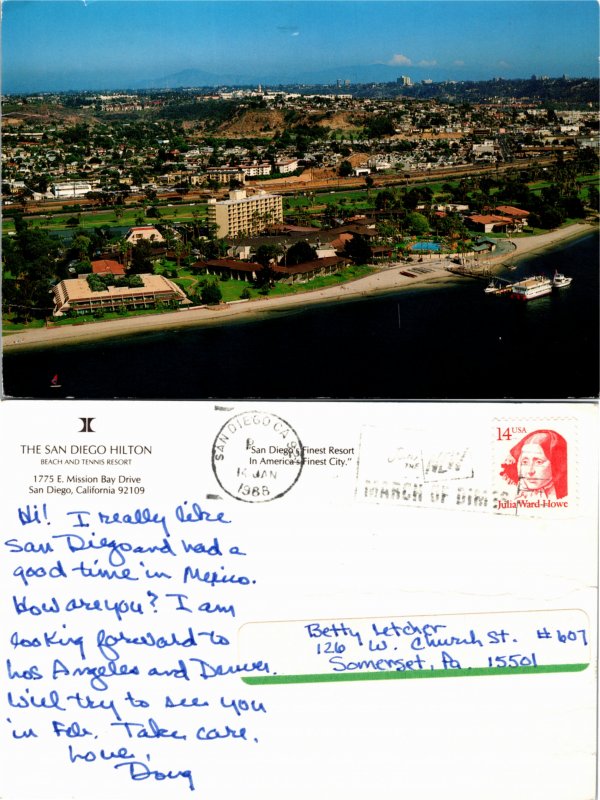 THE SAN DIEGO HILTON
BEACH AND TENNIS RESORT
1775 E. Mission Bay Drive
San Diego, California 92109
SAN DIEGO CA
14 JAN
1988
"San Diego's Finest Resort
In America's Finest City."
NEW
MARCH OF DIMES
14 USA
Julia Ward Howe
Hi! I really like
San Diego and had a
good time in Mexico.
How are you? I am
looking forward to
Los Angeles and Denver.
Will try to see you
in Feb. Take care.
Love,
Doug
Betty Letcher
126 W. Church St. #607
Somerset, Pa. 15501